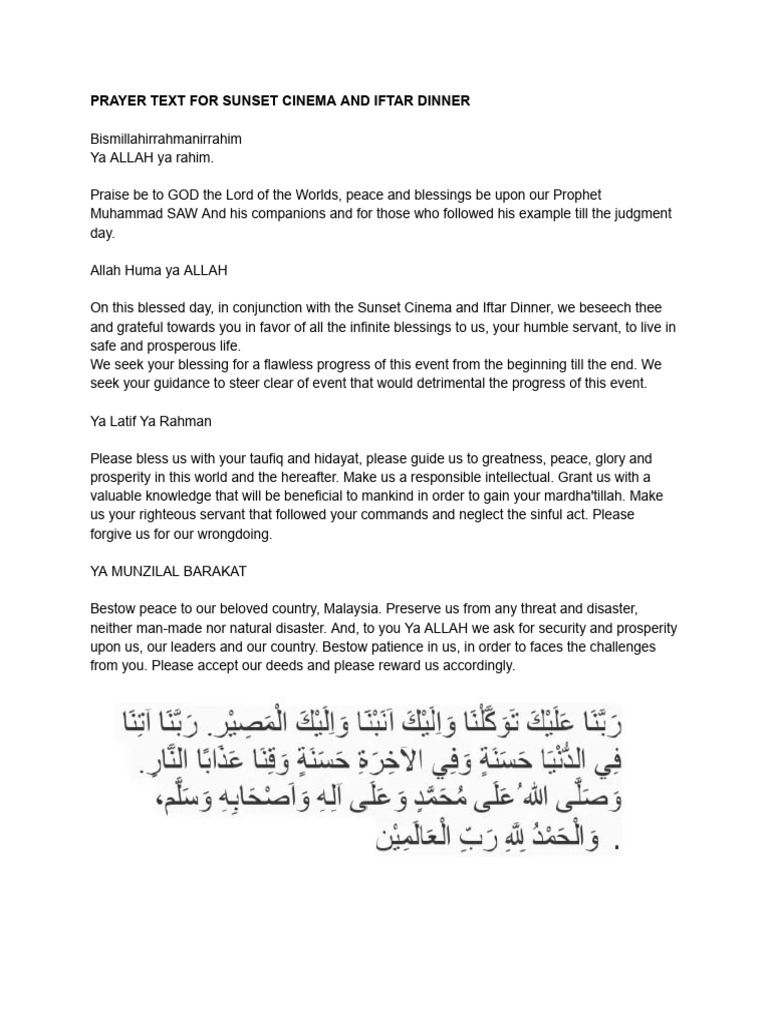 PRAYER TEXT FOR SUNSET CINEMA AND IFTAR DINNER
Bismillahirrahmanirrahim
Ya ALLAH ya rahim.
Praise be to GOD the Lord of the Worlds, peace and blessings be upon our Prophet
Muhammad SAW And his companions and for those who followed his example till the judgment
day.
Allah Huma ya ALLAH
On this blessed day, in conjunction with the Sunset Cinema and Iftar Dinner, we beseech thee
and grateful towards you in favor of all the infinite blessings to us, your humble servant, to live in
safe and prosperous life.
We seek your blessing for a flawless progress of this event from the beginning till the end. We
seek your guidance to steer clear of event that would detrimental the progress of this event.
Ya Latif Ya Rahman
Please bless us with your taufiq and hidayat, please guide us to greatness, peace, glory and
prosperity in this world and the hereafter. Make us a responsible intellectual. Grant us with a
valuable knowledge that will be beneficial to mankind in order to gain your mardha'tillah. Make
us your righteous servant that followed your commands and neglect the sinful act. Please
forgive us for our wrongdoing.
YA MUNZILAL BARAKAT
Bestow peace to our beloved country, Malaysia. Preserve us from any threat and disaster,
neither man-made nor natural disaster. And, to you Ya ALLAH we ask for security and prosperity
upon us, our leaders and our country. Bestow patience in us, in order to faces the challenges
from you. Please accept our deeds and please reward us accordingly.
رَبَّنَا عَلَيْكَ تَوَكَّلْنَا وَاِلَيْكَ اَنَبْنَا وَاِلَيْكَ الْمَصِيْر. رَبَّنَا آتِنَا
فِي الدُّنْيَا حَسَنَةٍ وَفِي الآخِرَةِ حَسَنَةٍ وَقِنَا عَذَابًا النَّارِ.
وَصَلَّى اللهُ عَلَى مُحَمَّدٍ وَعَلَى آلِهِ وَاَصْحَابِهِ وَسَلَّم،
. وَالْحَمْدُ لِلَّهِ رَبِّ الْعَالَمِيْن